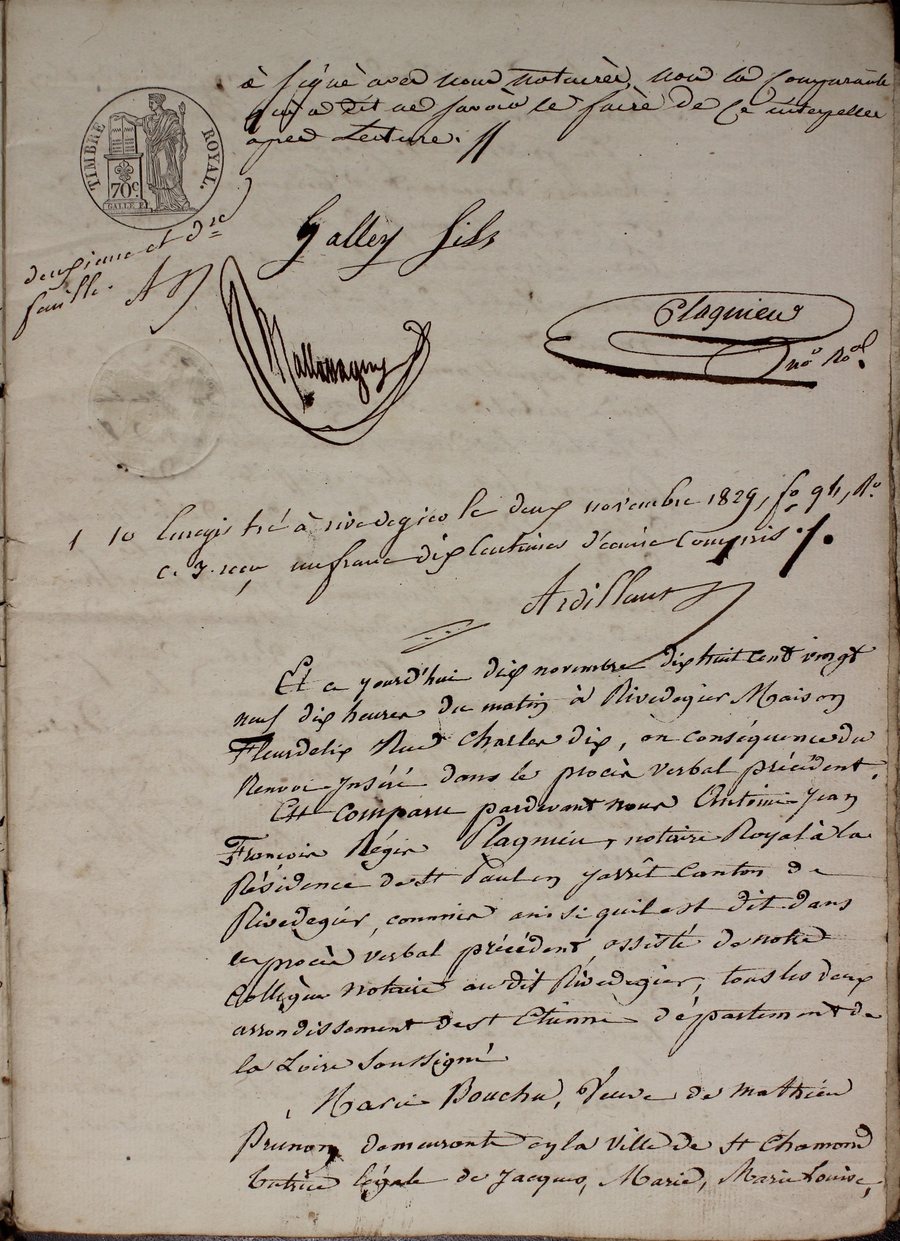 a signé avec nous notaires, non la comparante
qui a dit ne savoir le faire de ce interpellée
après Lecture. //
TIMBRE ROYAL.
70 c.
GALLE F.
deuxieme et dre
feuille.
Galley fils
Plagnieu
nore Roal.
1 10 Enregistré à rivedegier le deux novembre 1829, fo 94, Ro
c. 7. reçu un franc dix Centimes décime Compris ./.
Ardillaut
Et ce jourd'hui dix novembre dix huit cent vingt
neuf dix heures du matin à Rivedegier Maison
Fleurdelix Rue Charles dix, en conséquence du
Renvoi Inséré dans le procès verbal précédent.
Est comparu pardevant nous Antoine Jean
François Régis Plagnieu, notaire Royal à la
Résidence de St Paul en jarrêt Canton de
Rivedegier, commis ainsi quil est dit dans
le procès verbal précédent assisté de notre
Collègue notaire au dit Rivedegier, tous les deux
arrondissement de St Etienne département de
la Loire Soussigné
Marie Bouchu, Veuve de mathieu
Prunon demeurante en la ville de St Chamond
tutrice légale de Jacques, Marie, Marie Louise,